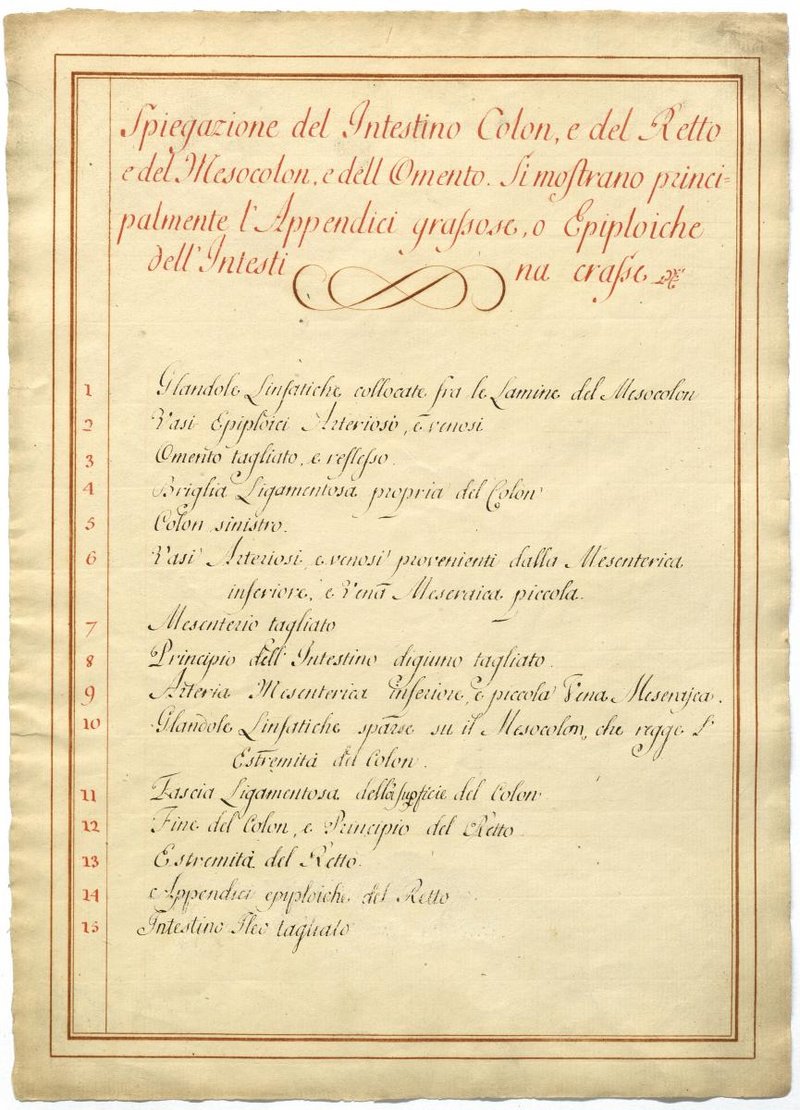 Spiegazione del Intestino Colon, e del Retto
e del Mesocolon, e dell Omento. Si mostrano princi=
palmente l'Appendici graſsose, o Epiploiche
dell'Intesti na craſse
1 Glandole Linfatiche collocate fra le Lamine del Mesocolon
2 Vasi Epiploici Arteriosi, e venosi
3 Omento tagliato, e refleſso.
4 Briglia Ligamentosa propria del Colon
5 Colon sinistro.
6 Vasi Arteriosi, e venosi provenienti dalla Mesenterica
inferiore, e Vena Meseraica piccola.
7 Mesenterio tagliato
8 Principio dell'Intestino digiuno tagliato.
9 Arteria Mesenterica inferiore, e piccola Vena Meserajca.
10 Glandole Linfatiche sparse su il Mesocolon, che regge l'
Estremità del Colon.
11 Fascia Ligamentosa della supficie del Colon
12 Fine del Colon, e Principio del Retto
13 Estremità del Retto.
14 Appendici epiploiche del Retto
15 Intestino Ileo tagliato